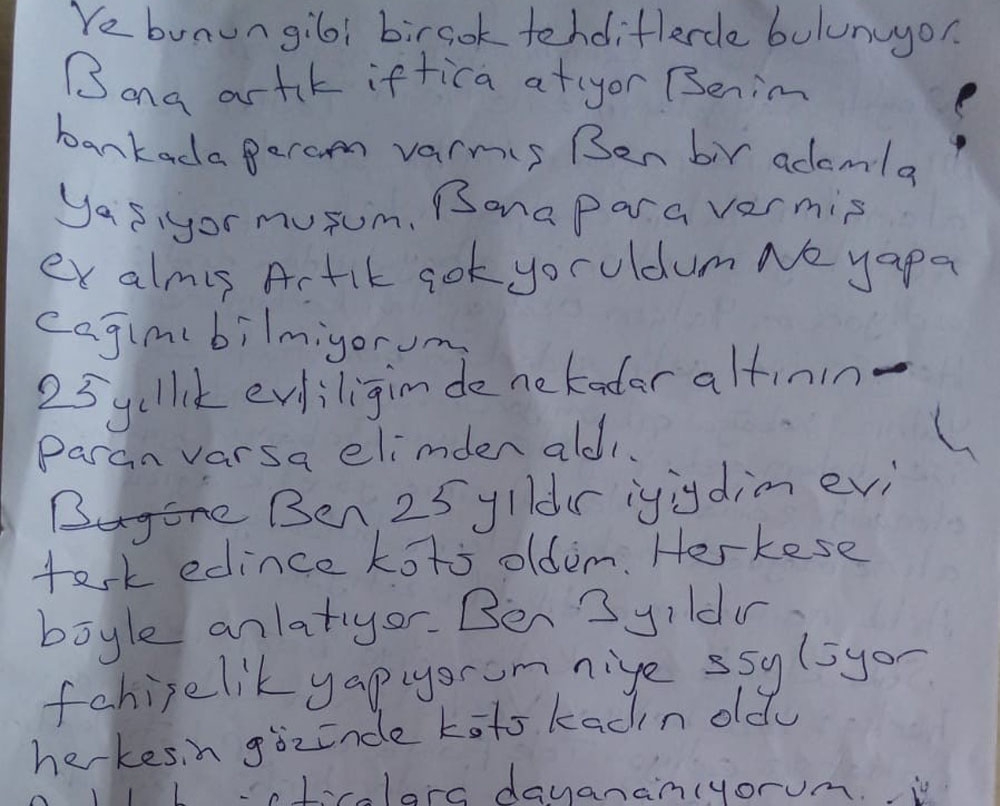 Ve bunun gibi birçok tehditlerde bulunuyor.
Bana artık iftira atıyor Benim
bankada param varmış Ben bir adamla
yaşıyormuşum. Bana para vermiş
ev almış Artık çok yoruldum Ne yapa
cağımı bilmiyorum
25 yıllık evliliğimde nekadar altının-
paran varsa elimden aldı.
Bugüne Ben 25 yıldır iyiydim evi
terk edince kötü oldum. Herkese
böyle anlatıyor. Ben 3 yıldır
fahişelik yapıyorum niye söylüyor
herkesin gözünde kötü kadın oldu
iftiralara dayanamıyorum.